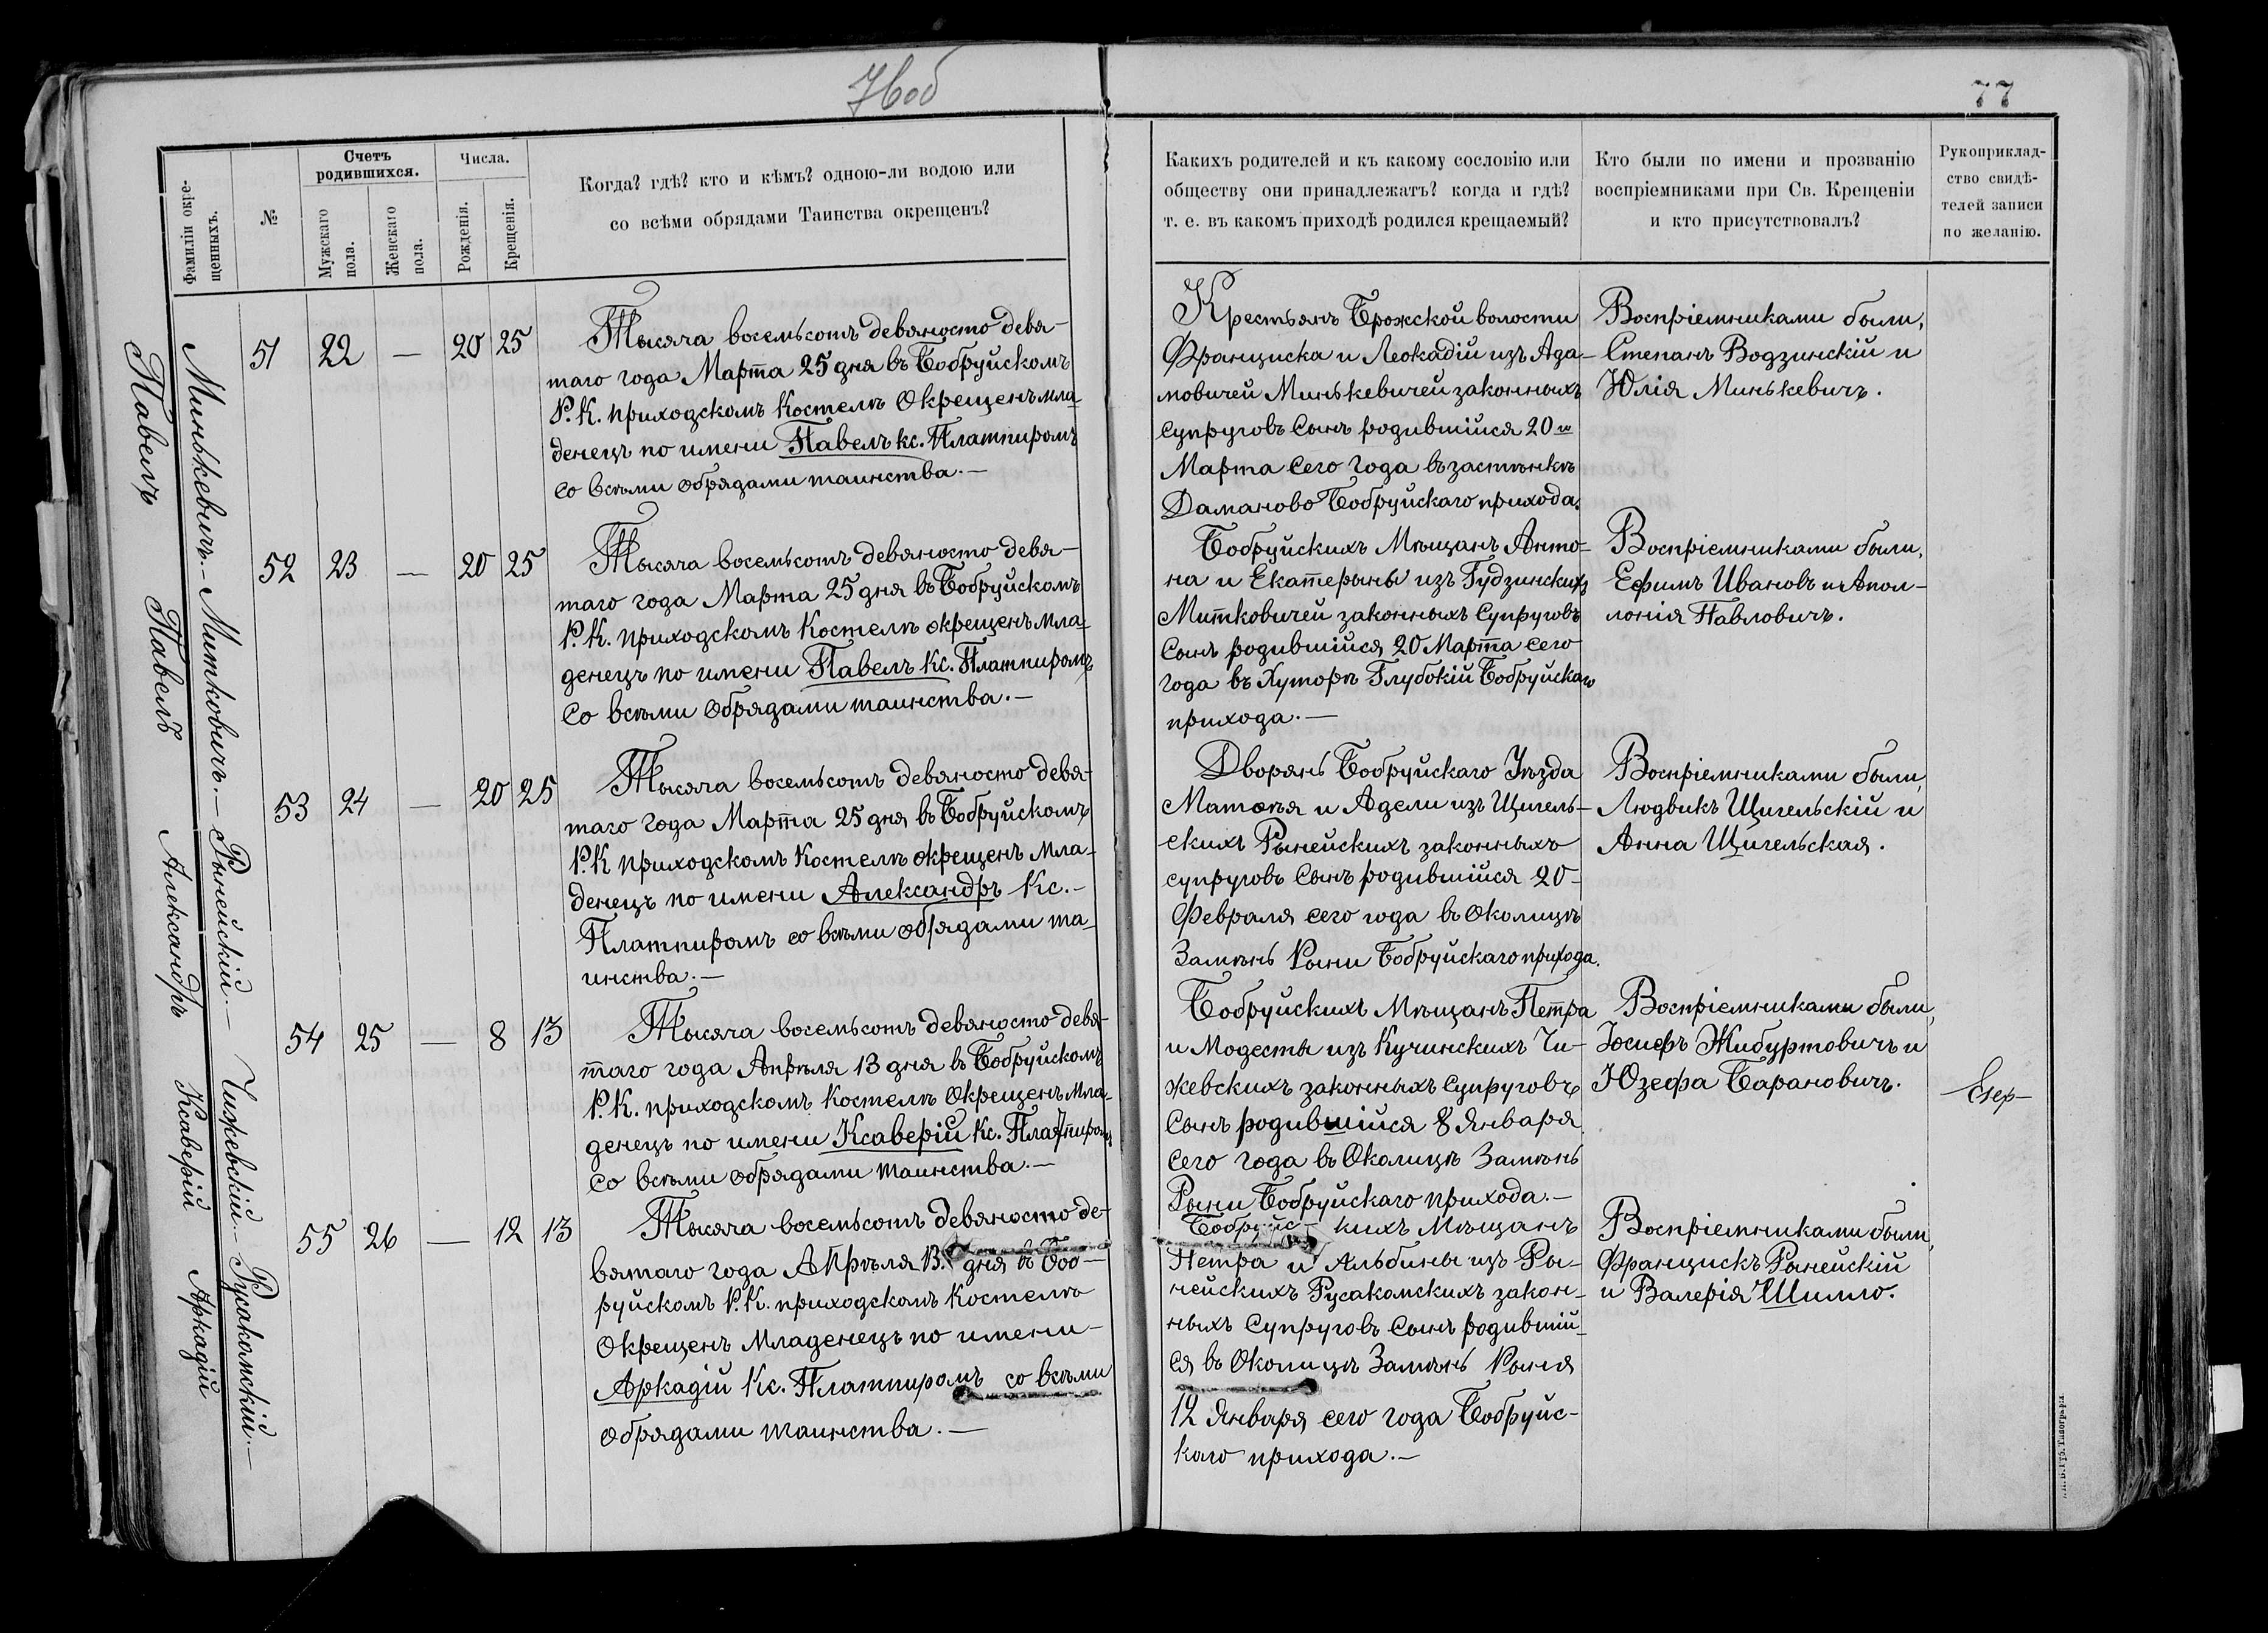 76об
77
Фамиліи окре-
щенныхъ.
№
Счетъ
родившихся.
Мужскаго
пола.
Женскаго
пола.
Числа.
Рожденія.
Крещенія.
Когда? гдѣ? кто и кѣмъ? одною-ли водою или
со всѣми обрядами Таинства окрещенъ?
Какихъ родителей и къ какому сословію или
обществу они принадлежатъ? когда и гдѣ?
т. е. въ какомъ приходѣ родился крещаемый?
Кто были по имени и прозванію
воспріемниками при Св. Крещеніи
и кто присутствовалъ?
Рукоприклад-
ство свидѣ-
телей записи
по желанію.
Минькевичъ.—
Павелъ
51 22 — 20 25
Тысяча восемьсотъ девяносто девя-
таго года Марта 25 дня въ Бобруйскомъ
Р. К. приходскомъ Костелѣ Окрещенъ мла-
денецъ по имени Павелъ кс. Платпиромъ
со всѣми обрядами таинства.—
Крестьянъ Брожской волости
Франциска и Леокадіи изъ Ада-
мовичей Минькевичей законныхъ
супруговъ Сынъ родившійся 20 го
Марта сего года въ застѣнкѣ
Даманово Бобруйскаго прихода.
Воспріемниками были,
Степанъ Водзинскій и
Юлія Минькевичъ.
Митковичъ.—
Павелъ
52 23 — 20 25
Тысяча восемьсотъ девяносто девя-
таго года Марта 25 дня въ Бобруйскомъ
Р. К. приходскомъ Костелѣ окрещенъ мла-
денецъ по имени Павелъ Кс. Платпиромъ
со всѣми обрядами таинства.—
Бобруйскихъ Мѣщанъ Анто-
на и Екатерыны изъ Гудзинскихъ
Митковичей законныхъ Супруговъ
Сынъ родившійся 20 Марта сего
года въ Хуторѣ Глубокій Бобруйскаго
прихода.—
Воспріемниками были,
Ефимъ Ивановъ и Апол-
лонія Павловичъ.
Рынейскій.—
Александръ
53 24 — 20 25
Тысяча восемьсотъ девяносто девя-
таго года Марта 25 дня въ Бобруйскомъ
Р. К приходскомъ Костелѣ окрещенъ Мла-
денецъ по имени Александръ Кс.—
Платпиромъ со всѣми обрядами та-
инства.—
Дворянъ Бобруйскаго Уѣзда
Матѳѣя и Адели изъ Щигель-
скихъ Рынейскихъ законныхъ
супруговъ Сынъ родившійся 20-
Февраля сего года въ околицѣ
Замѣнь Рыни Бобруйскаго прихода.
Воспріемниками были,
Людвикъ Щигельскій и
Анна Щигельская.
Чижевскій.—
Ксаверій
54 25 — 8 13
Тысяча восемьсотъ девяносто девя-
таго года Апрѣля 13 дня въ Бобруйскомъ
Р. К. приходскомъ Костелѣ Окрещенъ Мла-
денецъ по имени Ксаверій Кс. Платпиромъ
со всѣми обрядами таинства.—
Бобруйскихъ Мѣщанъ Петра
и Модесты изъ Кучинскихъ Чи-
жевскихъ законныхъ Супруговъ
Сынъ родившійся 8 Января
сего года въ Околицѣ Замѣнь
Рыни Бобруйскаго прихода.—
Воспріемниками были,
Іосифъ Жибуртовичъ и
Юзефа Барановичъ.
Русакомскій.—
Аркадій
55 26 — 12 13
Тысяча восемьсотъ девяносто де-
вятаго года Апрѣля 13. дня въ Боб-
руйскомъ Р. К. приходскомъ Костелѣ
Окрещенъ Младенецъ по имени—
Аркадій Кс. Платпиромъ со всѣми
обрядами таинства.—
Бобруйс-кихъ Мѣщанъ
Петра и Альбины изъ Ры-
нейскихъ Русакомскихъ закон-
ныхъ Супруговъ Сынъ родившій-
ся въ Околицѣ Замѣнь Рыня
12 Января сего года Бобруйс-
каго прихода.—
Воспріемниками были,
Францискъ Рынейскій
и Валерія Шилло.